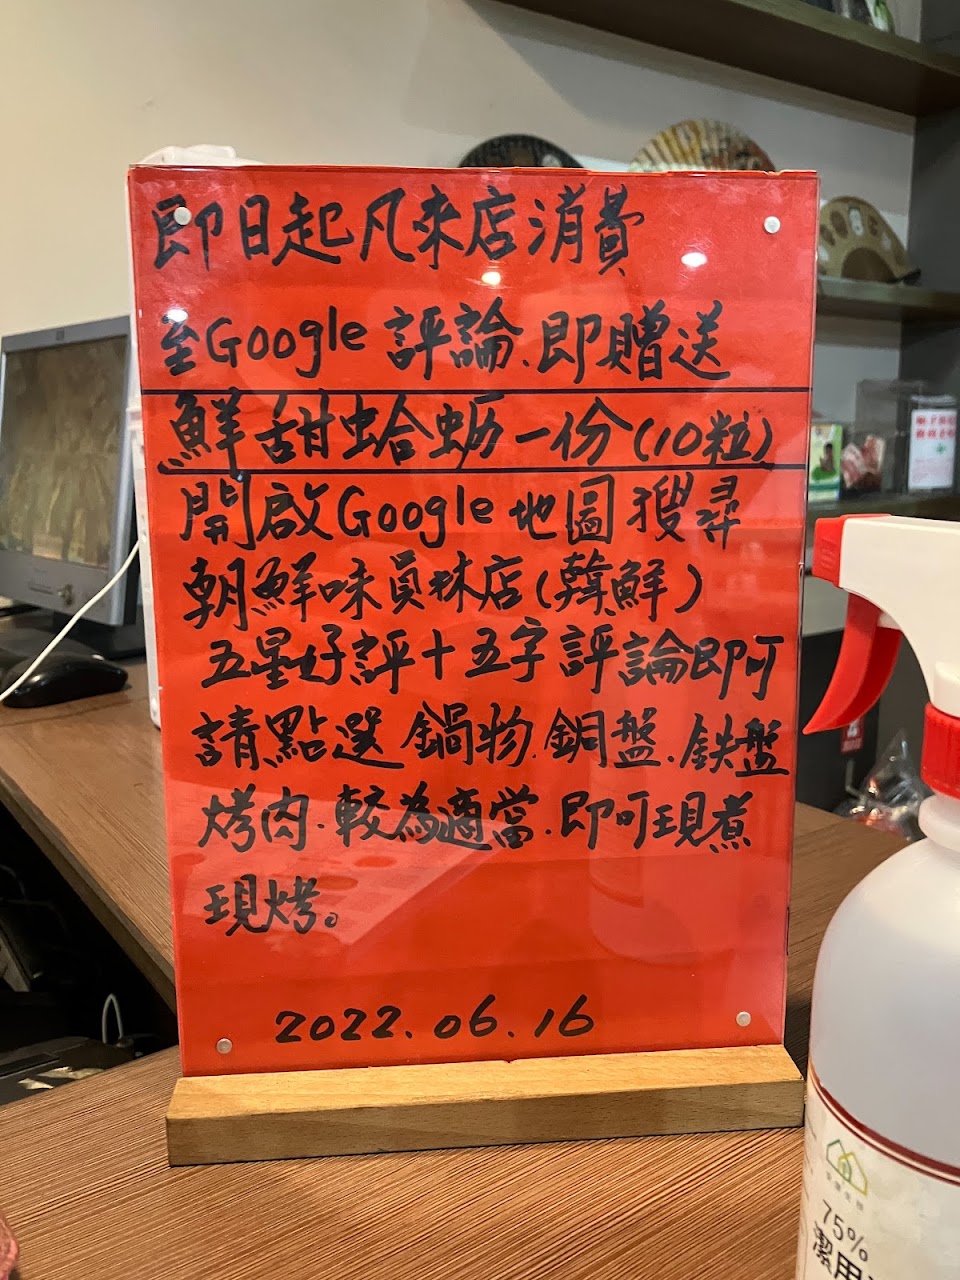 即日起凡來店消費
至Google評論、即贈送
鮮甜蛤蜊一份(10粒)
開啟Google地圖搜尋
朝鮮味員林店(韓鮮)
五星好評十五字評論即可
請點選鍋物.銅盤.鉄盤
烤肉.較為適當.即可現煮
現烤。
2022.06.16
75%
潔用